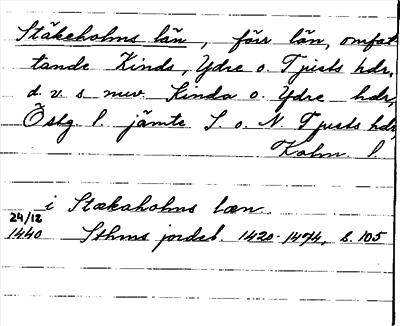 Stäkeholms län, förr län, omfat-
tande Kinds, Ydre o. Tjusts hdr,
d. v. s. nuv. Kinda o. Ydre hdr,
Östg. l. jämte S. o. N. Tjusts hdr,
Kalm. l.
i Stækaholms læn
24/12
1440 Sthms jordeb. 1420-1474, s. 105